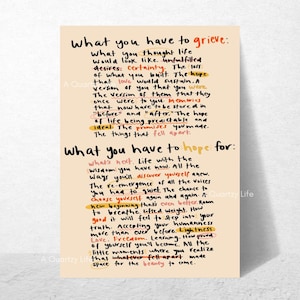 what you have to grieve:
what you thought life
would look like. unfulfilled
desires. certainty. The loss
of what you built. The hope
that love would sustain. A
version of you that you were.
The version of them that they
once were to you. memories
that now have to be stored in
"before" and "after". The hope
of life being predictable and
ideal. The promises you made.
The things that won't be.
what you have to hope for:
what's next. Life with the
wisdom you have now. All the
ways you'll discover yourself again.
The re-emergence of all the voices
you had to quiet. The chance to
choose yourself again and again. A
new beginning that's even better. Room
to breathe lifted weight. How
good it will feel to step into your
truth. Accepting your humanness
more than ever before. Lightness.
Love. Freedom. Learning. How proud
of yourself you'll become. All the
little moments where you realize
that whatever fell apart made
space for the beauty to come.
A Country Life